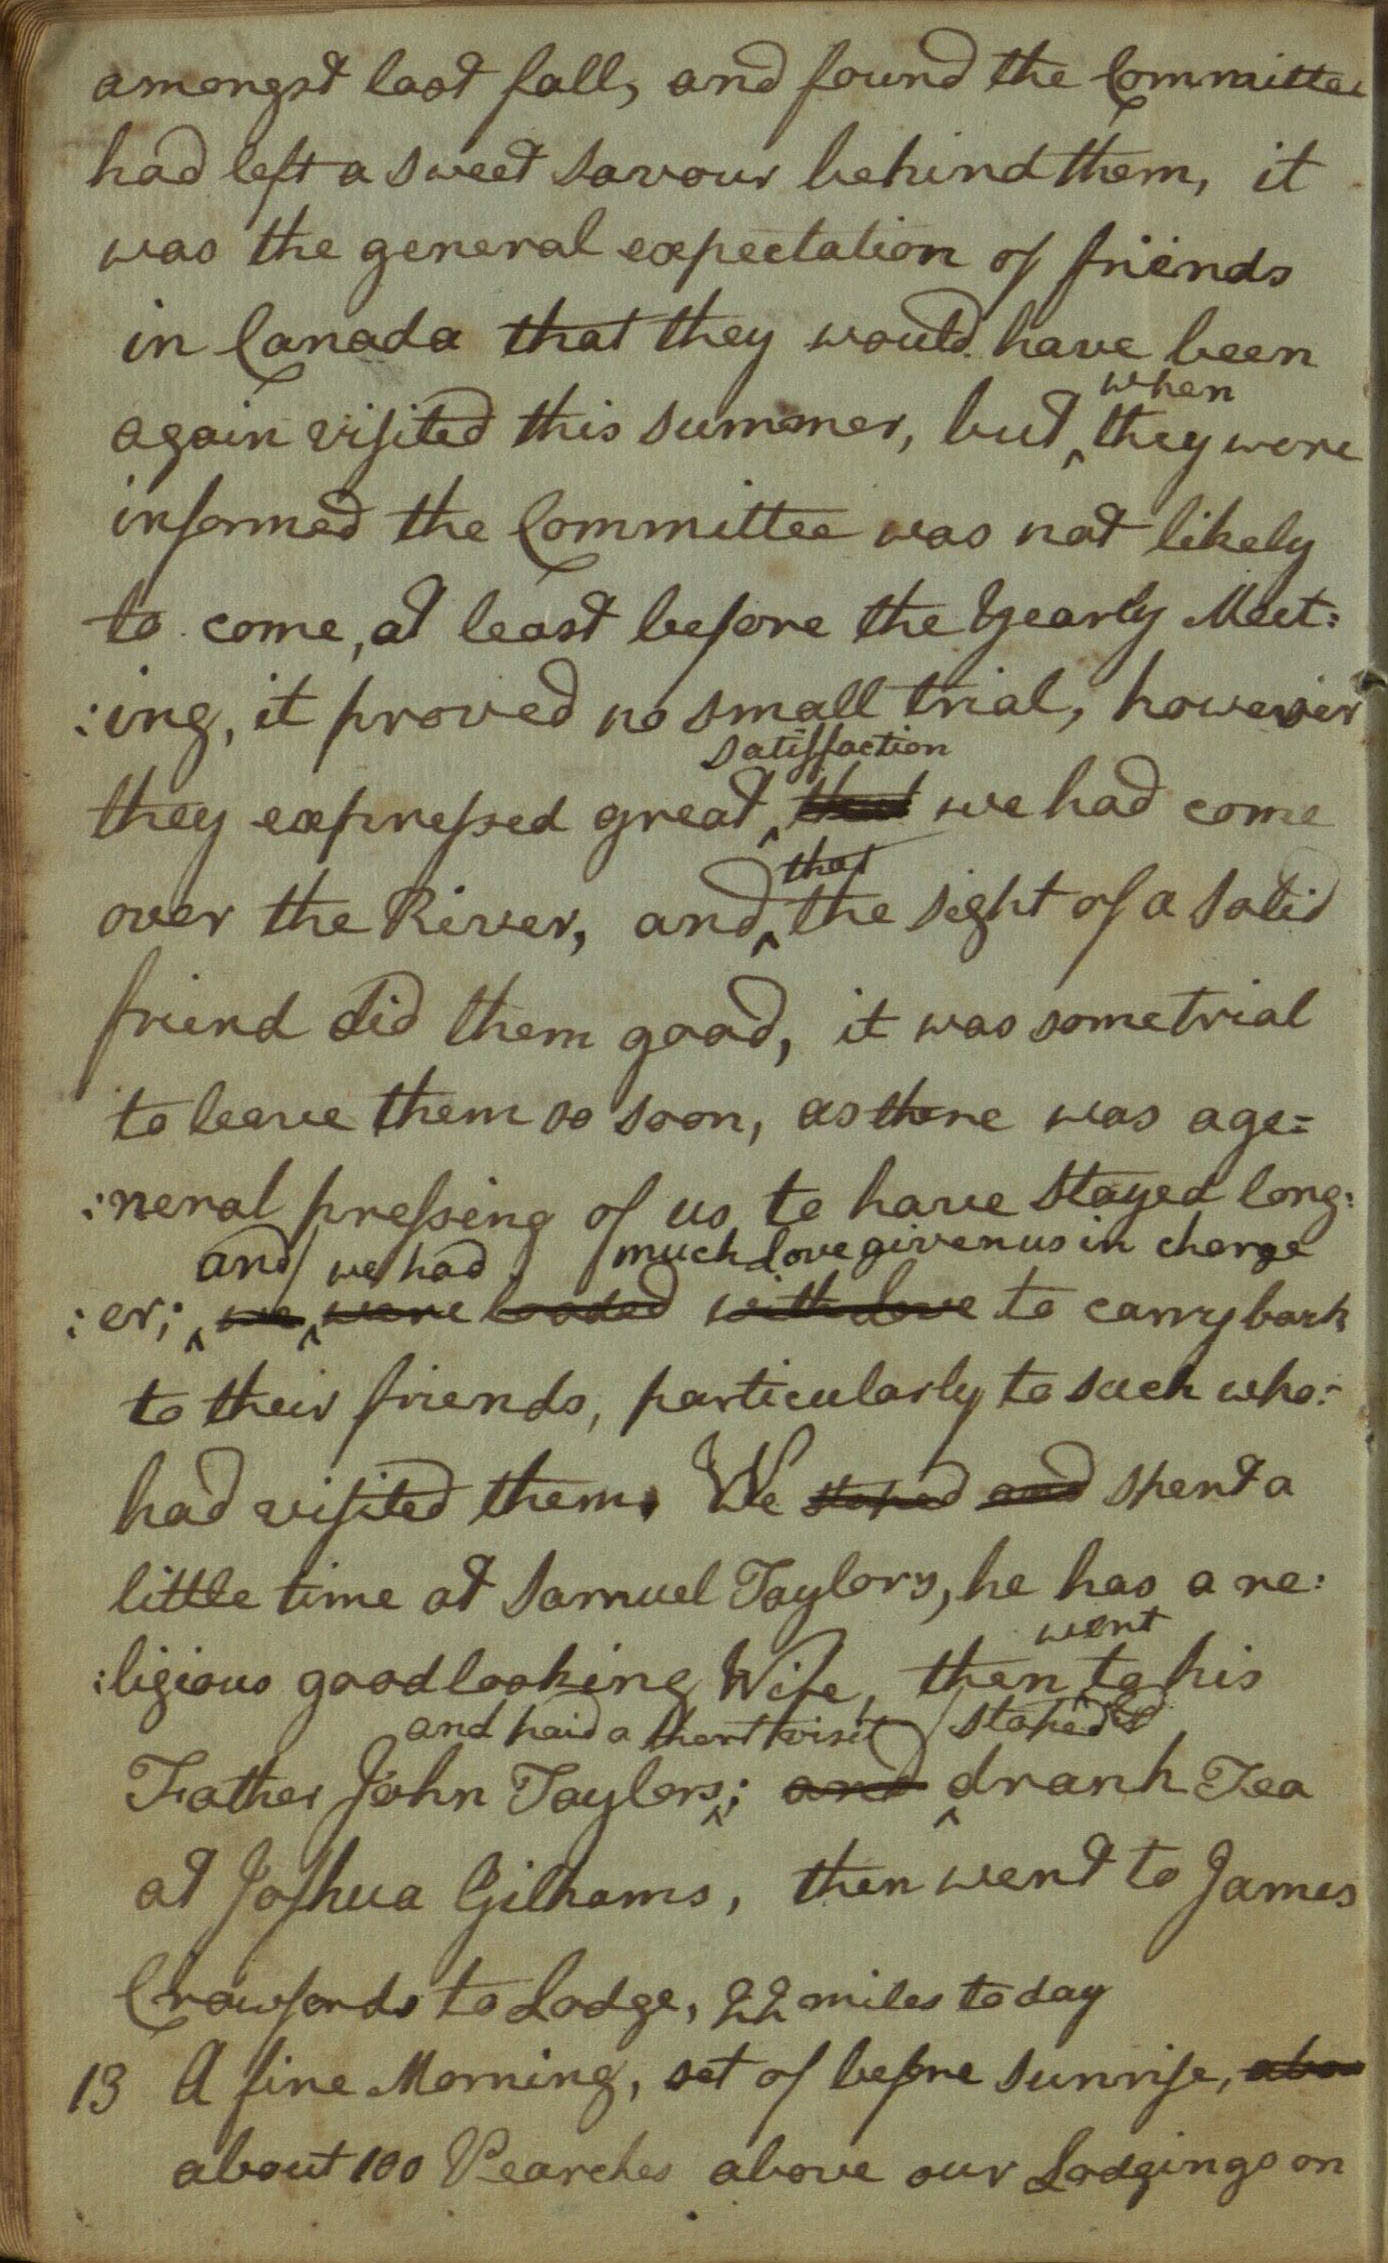 amongst last fall, and found the Committee
had left a sweet savour behind them, it
was the general expectation of friends
in Canada that they would have been
when
again visited this summer, but ^ they were
informed the Committee was not likely
to come, at least before the Yearly Meet:
:ing, it proved no small trial, however
satisfaction
they expressed great ^ that we had come
that
over the River, and ^ the sight of a solid
friend did them good, it was some trial
to leave them so soon, as there was a ge=
:neral pressing of us to have stayed long:
and we had much love given us in charge
:er; ^ we ^ were loaded with love to carry back
to their friends, particularly to such who:
had visited them. We stoped and spent a
little time at Samuel Taylors, he has a re:
went
:ligious good looking Wife, then to his
and paid a short visit stoped &
Father John Taylors ^; and ^ drank Tea
at Joshua Gilhams, then went to James
Crawfords to Lodge, 22 miles to day
13 A fine Morning, set of before sunrise, abou
about 100 Pearches above our Lodgings on